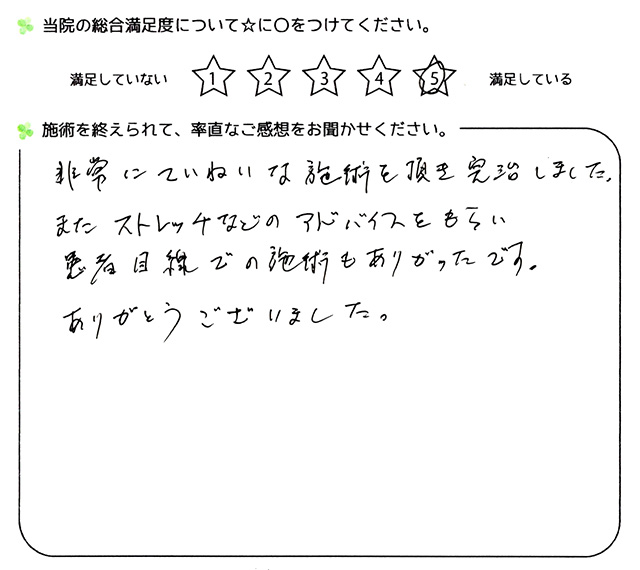 当院の総合満足度について☆に○をつけてください。
満足していない 1 2 3 4 5 満足している
施術を終えられて、率直なご感想をお聞かせください。
非常にていねいな施術を頂き完治しました。
またストレッチなどのアドバイスをもらい
患者目線での施術もありがったです。
ありがとうございました。